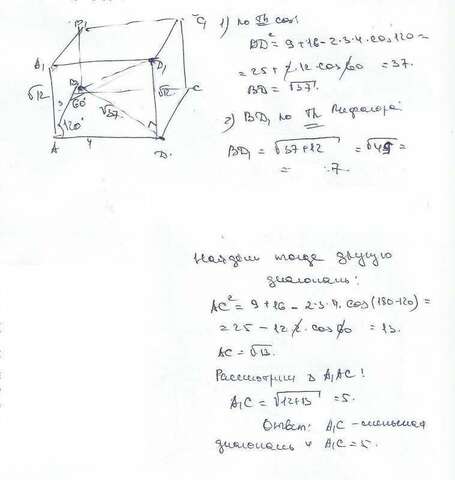 B₁ C₁
A₁ D₁
√12 B √12 C
3 60° √37
120°
A 4 D
1) по Th cos:
BD² = 9+16-2·3·4·cos120 =
= 25 + 2·12·cos60 = 37.
BD = √37.
2) BD₁ по Th Пифагора:
BD₁ = √37+12 = √49 =
= 7.
Найдем тогда другую
диагональ:
AC² = 9+16 - 2·3·4·cos(180-120) =
= 25 - 12·2·cos60 = 13.
AC = √13.
Рассмотрим Δ A₁AC:
A₁C = √12+13 = 5.
Ответ: A₁C - меньшая
диагональ и A₁C = 5.